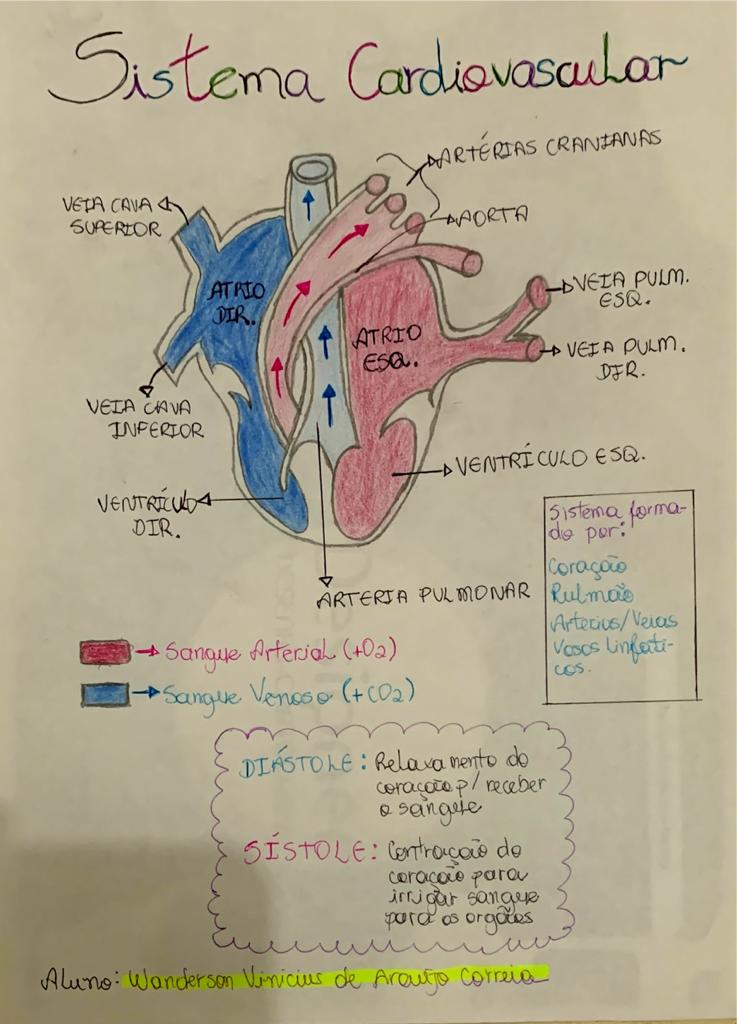 Sistema Cardiovascular
ARTÉRIAS CRANIANAS
VEIA CAVA
SUPERIOR
AORTA
ATRIO
DIR.
VEIA PULM.
ESQ.
ATRIO
ESQ.
VEIA PULM.
DIR.
VEIA CAVA
INFERIOR
VENTRÍCULO ESQ.
VENTRÍCULO
DIR.
ARTERIA PULMONAR
Sistema forma-
do por:
Coração
Pulmão
Arterias/Veias
Vasos linfáti-
cos.
Sangue Arterial (+O2)
Sangue Venoso (+CO2)
DIÁSTOLE: Relaxamento do
coração p/ receber
o sangue
SÍSTOLE: Contração do
coração para
irrigar sangue
para os orgães
Aluno: Wanderson Vinicius de Araujo Correia